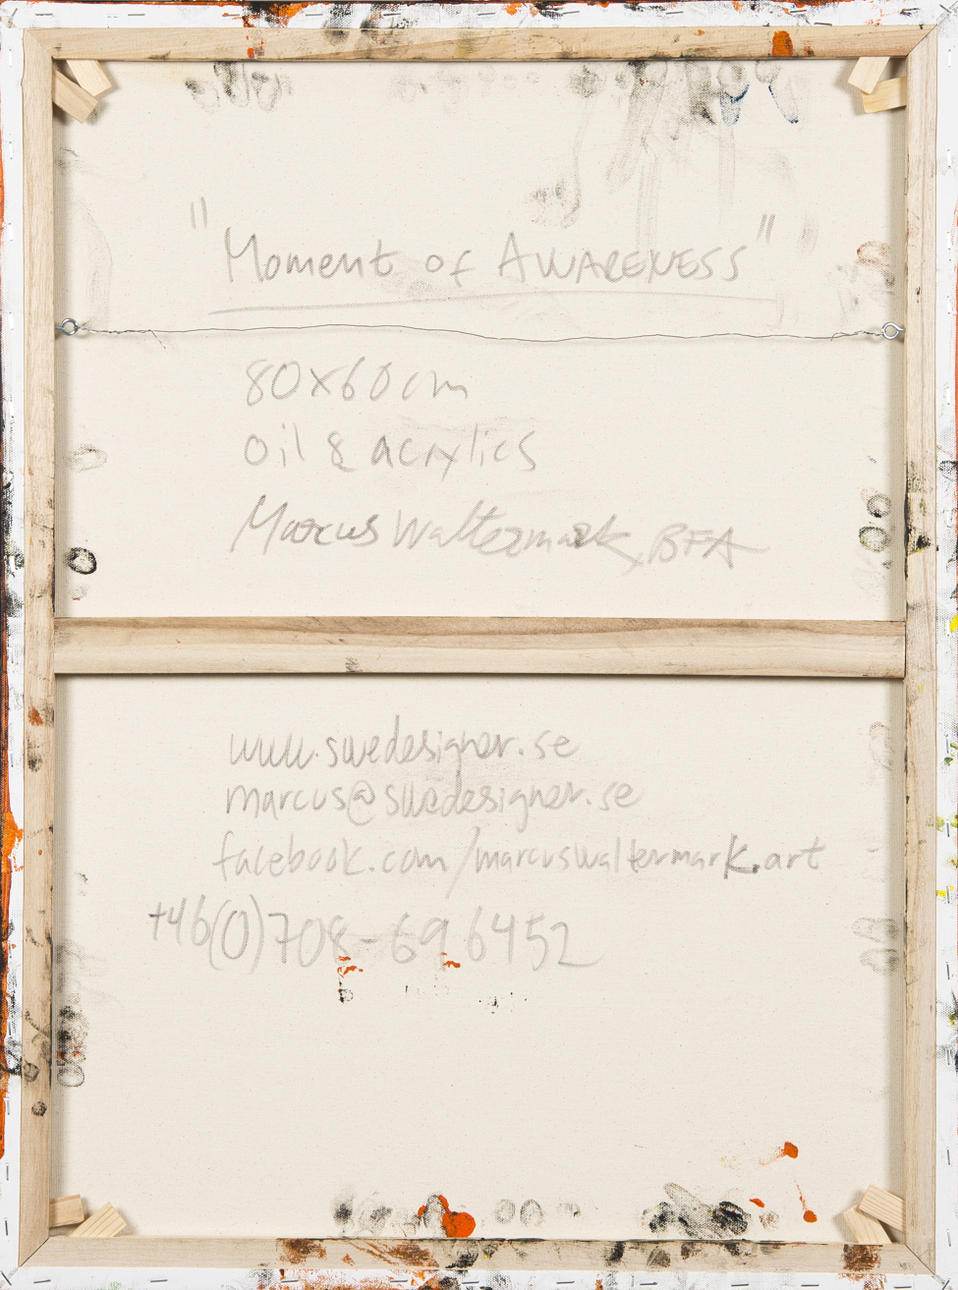 "Moment of AWARENESS"
80x60cm
oil & acrylics
Marcus Waltermark, BFA
www.swedesigner.se
marcus@swedesigner.se
facebook.com/marcuswaltermark.art
+46(0)708-69 6452